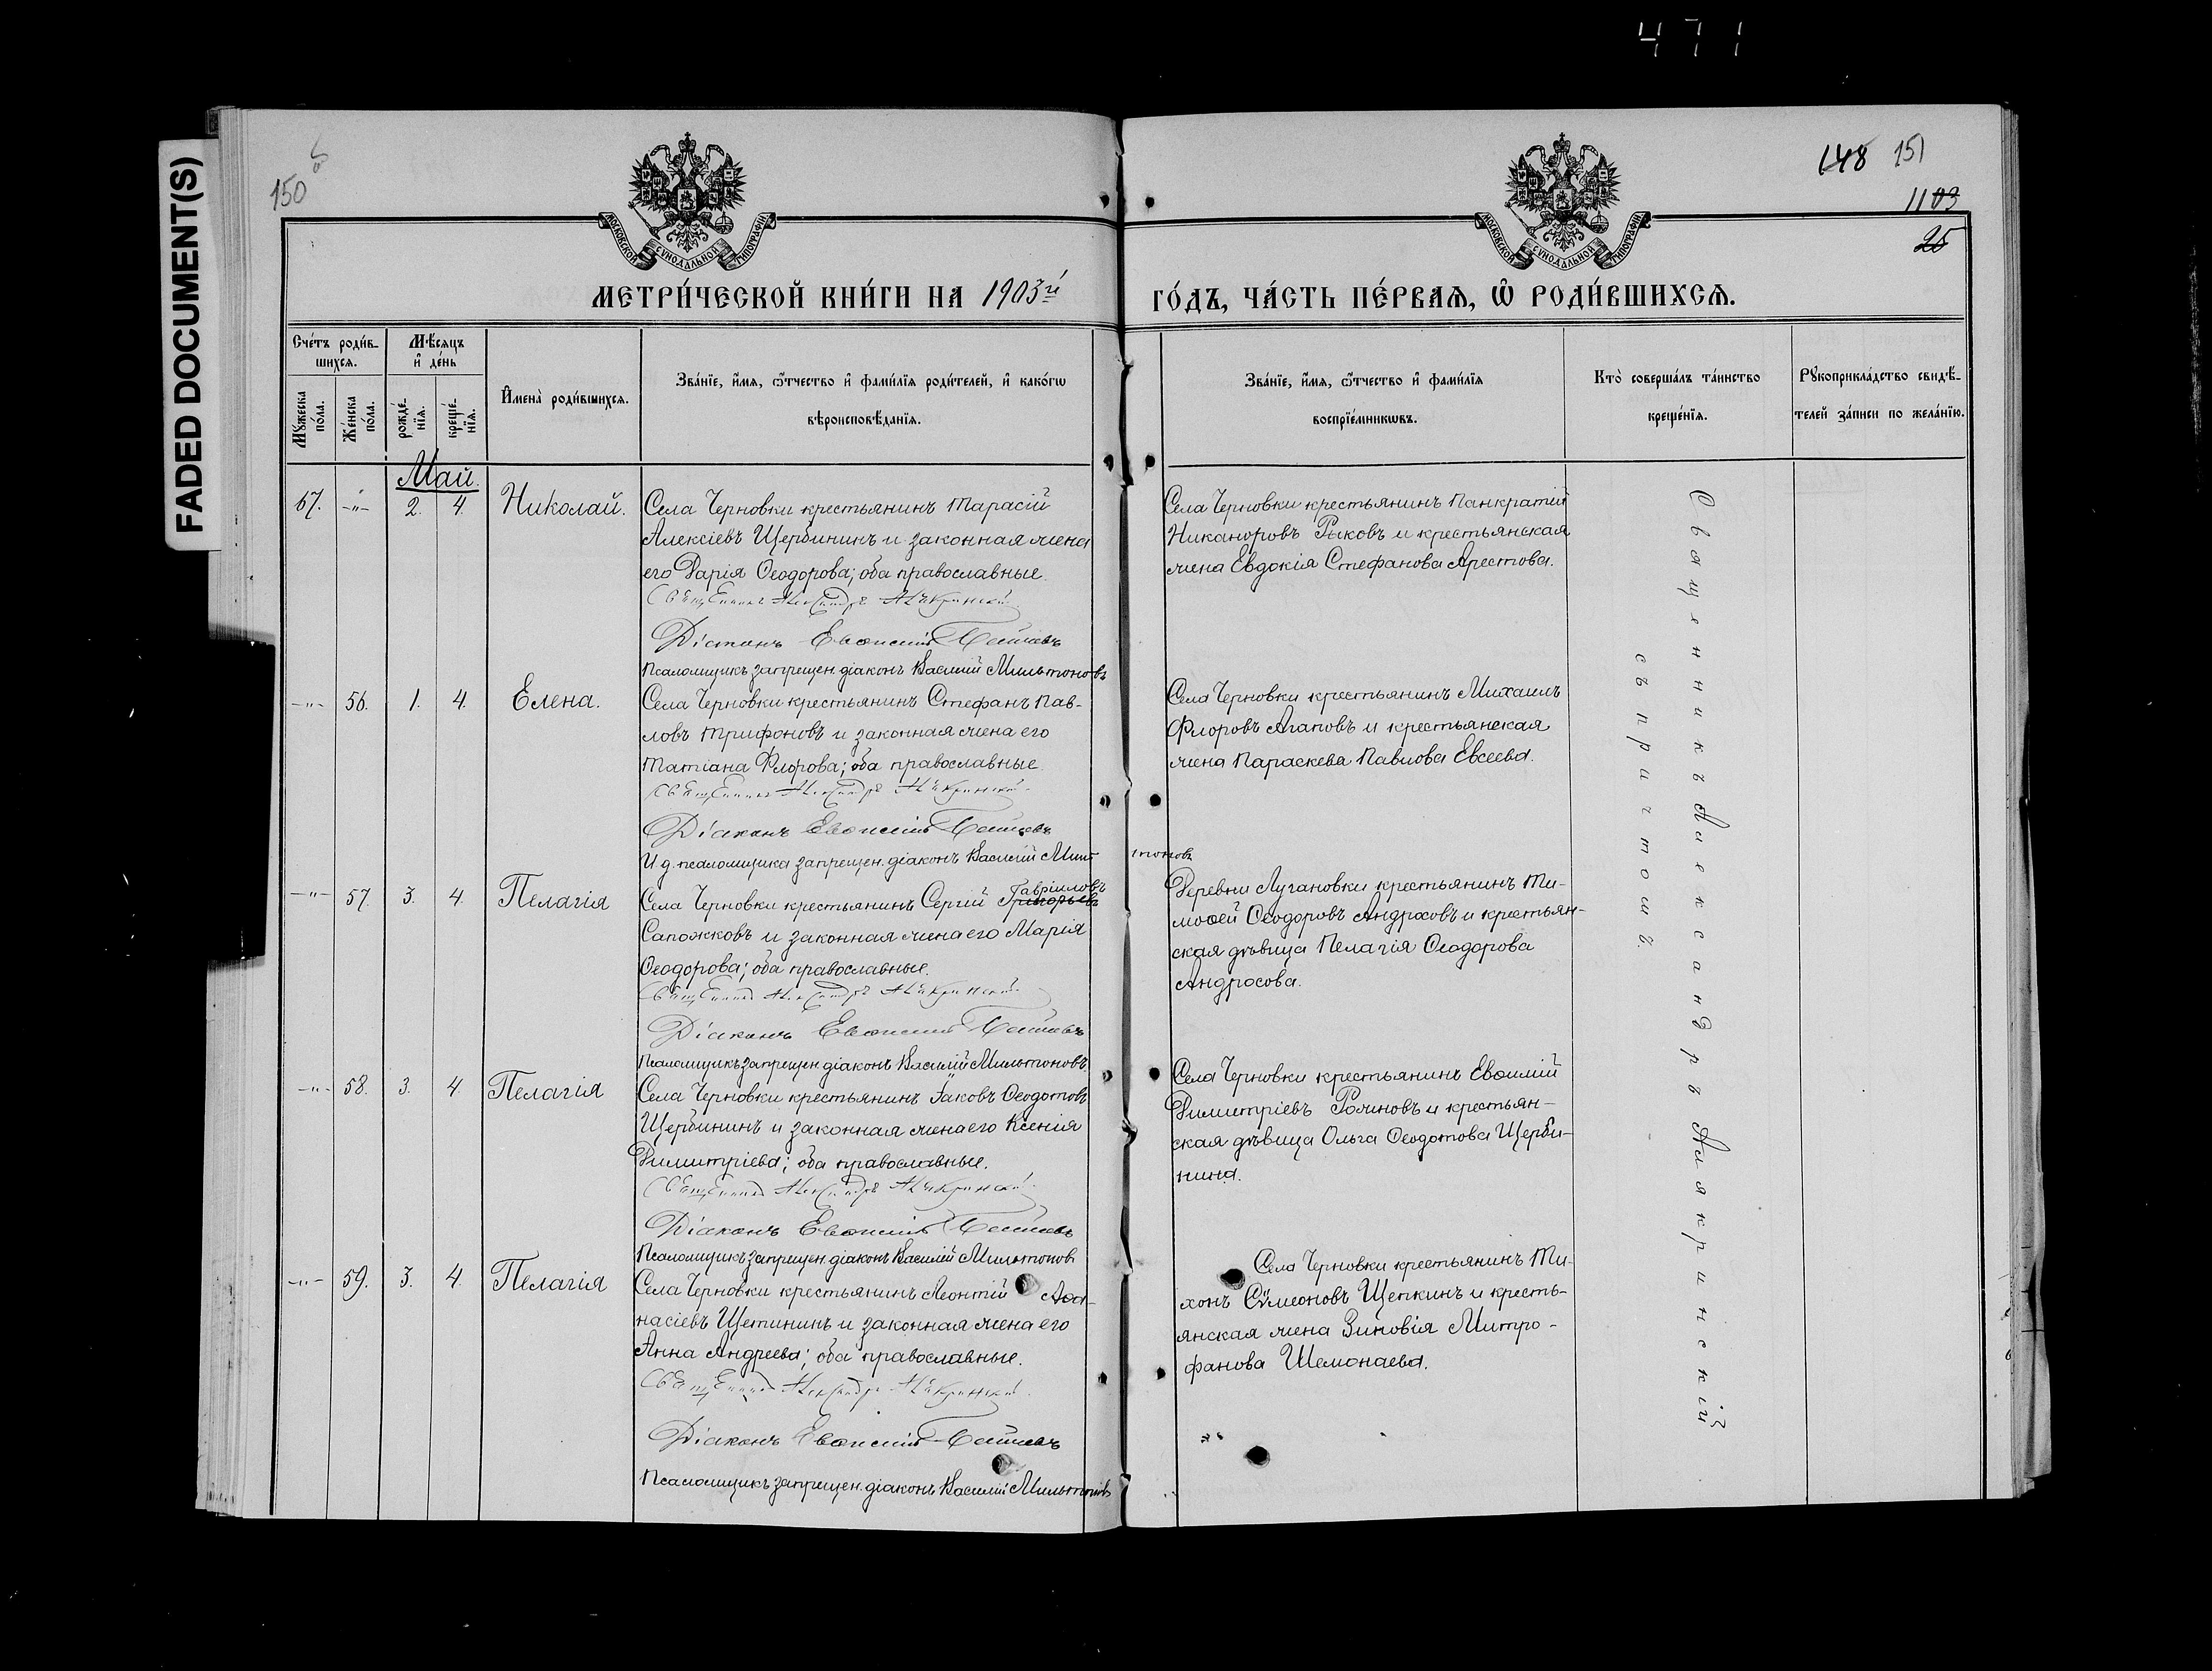 471
FADED DOCUMENT(S)
150
148 151
1103
25
МОСКОВСКОЙ СѴНОДАЛЬНОЙ ТИПОГРАФІИ
МОСКОВСКОЙ СѴНОДАЛЬНОЙ ТИПОГРАФІИ
МЕТРИ́ЧЕСКОЙ КНИ́ГИ НА 1903й ГО́ДЪ, ЧА́СТЬ ПЕ́РВАЯ, Ѡ РОДИ́ВШИХСЯ.
Сче́тъ роди́в-
шихся.
Мꙋ́жеска по́ла.
Же́нска по́ла.
Мѣ́сяцъ
и де́нь
рожде́-
нїя.
креще́-
нїя.
Имена̀ роди́вшихся.
Зва́нїе, и́мя, ѻ́тчество и фами́лїя роди́телей, и како́гѡ
вѣроисповѣ́данїя.
Зва́нїе, и́мя, ѻ́тчество и фами́лїя
воспрїе́мникѡвъ.
Кто̀ соверша́лъ та́инство
креще́нїя.
Рꙋкоприкла́дство свидѣ́-
телей за́писи по жела́нїю.
Май.
67. -"- 2. 4. Николай.
Села Черновки крестьянинъ Тарасій
Алексіевъ Щербининъ и законная жена
его Дарія Ѳеодорова; оба православные.
Священникъ Александръ Алякринскій
Діаконъ Евѳимій
Псаломщикъ запрещен. діаконъ Василій Мильтоновъ
Села Черновки крестьянинъ Панкратій
Никаноровъ Рыковъ и крестьянская
жена Евдокія Стефанова Арестова.
-"- 56. 1. 4. Елена.
Села Черновки крестьянинъ Стефанъ Пав-
ловъ Трифоновъ и законная жена его
Татіана Флорова; оба православные.
Священникъ Александръ Алякринскій
Діаконъ Евѳимій
И. д. псаломщика запрещен. діаконъ Василій Мильтоновъ
Села Черновки крестьянинъ Михаилъ
Флоровъ Агаповъ и крестьянская
жена Параскева Павлова Евсеева.
-"- 57. 3. 4. Пелагія
Гавріиловъ
Села Черновки крестьянинъ Сергій Григорьевъ
Сапожковъ и законная жена его Марія
Ѳеодорова; оба православные.
Священникъ Александръ Алякринскій
Діаконъ Евѳимій
Псаломщикъ запрещен діаконъ Василій Мильтоновъ
Деревни Лугановки крестьянинъ Ти-
моѳей Ѳеодоровъ Андросовъ и крестьян-
ская дѣвица Пелагія Ѳеодорова
Андросова.
-"- 58. 3. 4 Пелагія
Села Черновки крестьянинъ Іаковъ Ѳеодотовъ
Щербининъ и законная жена его Ксенія
Димитріева; оба православные.
Священникъ Александръ Алякринскій
Діаконъ Евѳимій
Псаломщикъ запрещен. діаконъ Василій Мильтоновъ
Села Черновки крестьянинъ Евѳимій
Димитріевъ Рожновъ и крестьян-
ская дѣвица Ольга Ѳеодотова Щерби-
нина.
-"- 59. 3. 4. Пелагія
Села Черновки крестьянинъ Леонтій Аѳа-
насіевъ Щетининъ и законная жена его
Анна Андреева; оба православные.
Священникъ Александръ Алякринскій
Діаконъ Евѳимій
Псаломщикъ запрещен. діаконъ Василій Мильтоновъ
Села Черновки крестьянинъ Ти-
хонъ Сѵмеоновъ Щепкинъ и кресть-
янская жена Зиновія Митро-
фанова Шемонаева.
Священникъ Александръ Алякринскій
съ причтомъ.